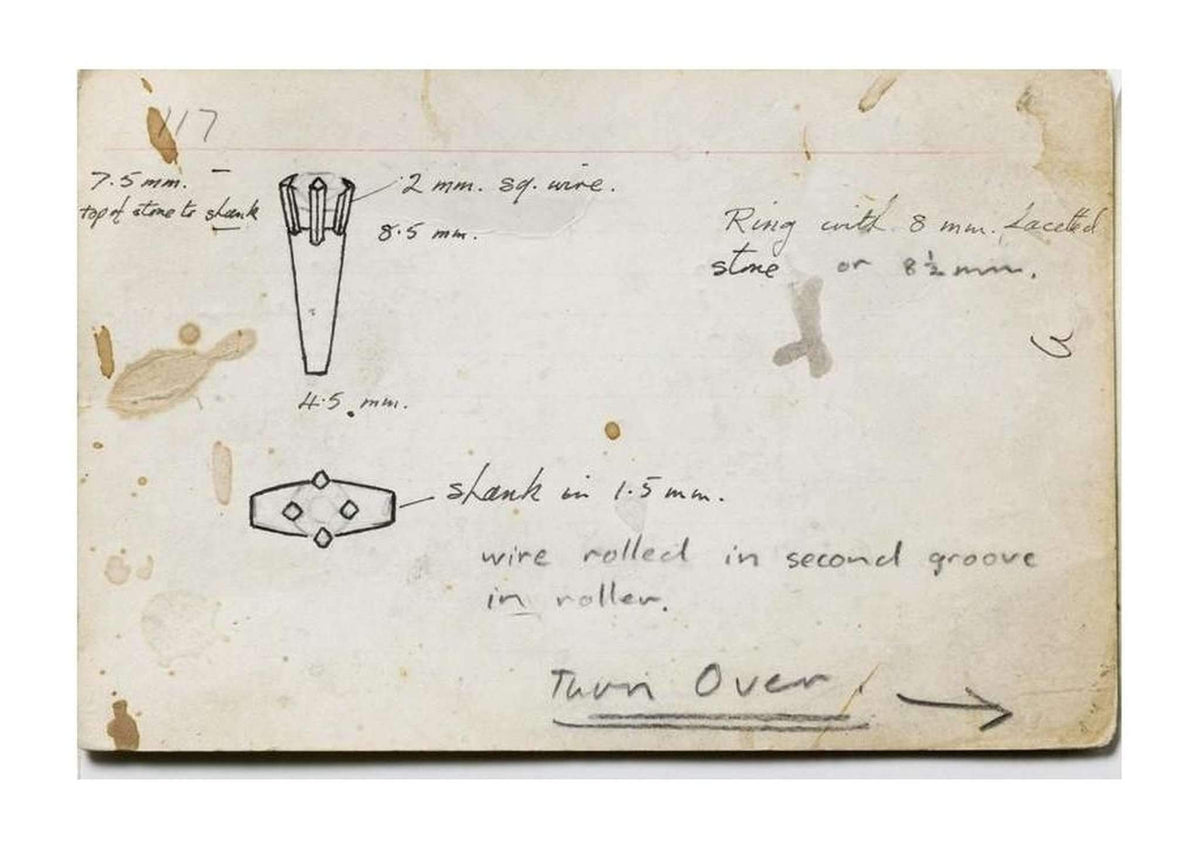 117
7.5 mm. -
top of stone to shank
2 mm. sq. wire.
8.5 mm.
Ring with 8 mm. facetted
stone or 8½ mm.
4.5 mm.
shank in 1.5 mm.
wire rolled in second groove
in roller.
Turn Over